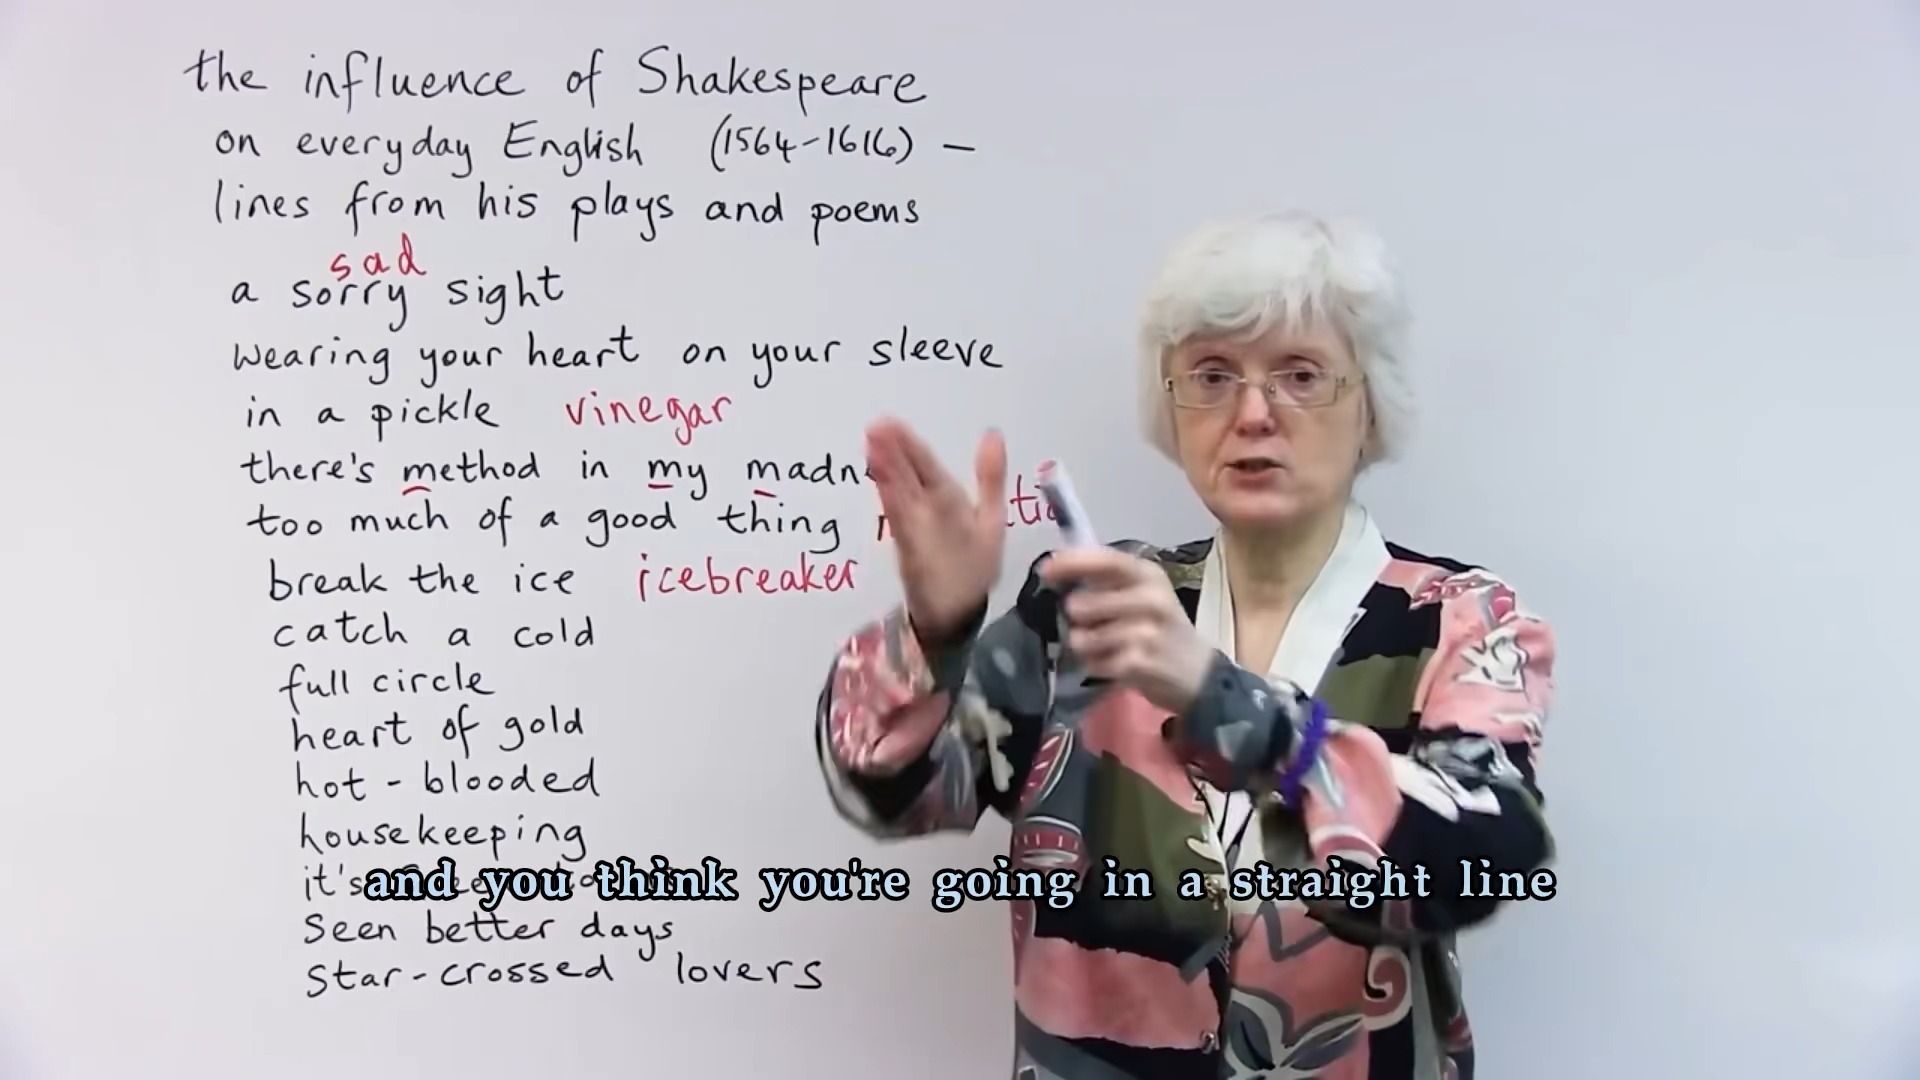 the influence of Shakespeare
on everyday English (1564-1616) –
lines from his plays and poems
sad
a sorry sight
wearing your heart on your sleeve
in a pickle vinegar
there's method in my
too much of a good thing
break the ice icebreaker
catch a cold
full circle
heart of gold
hot - blooded
housekeeping
it's
and you think you're going in a straight line
seen better days
star-crossed lovers